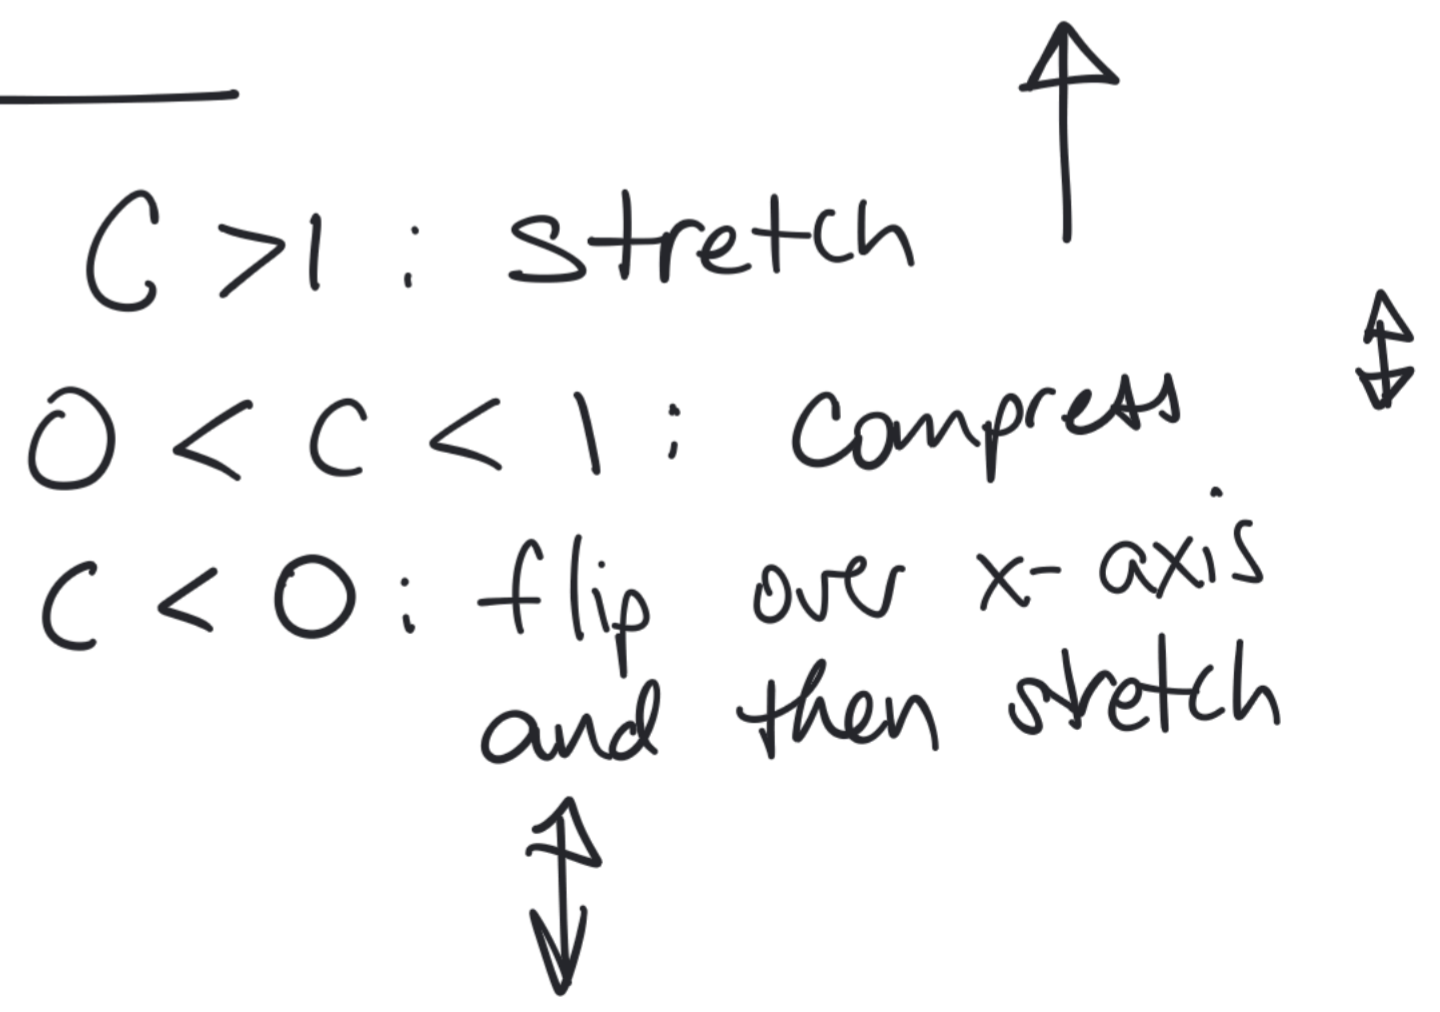 C > 1 : stretch
0 < C < 1 : compress
C < 0 : flip over x-axis
and then stretch